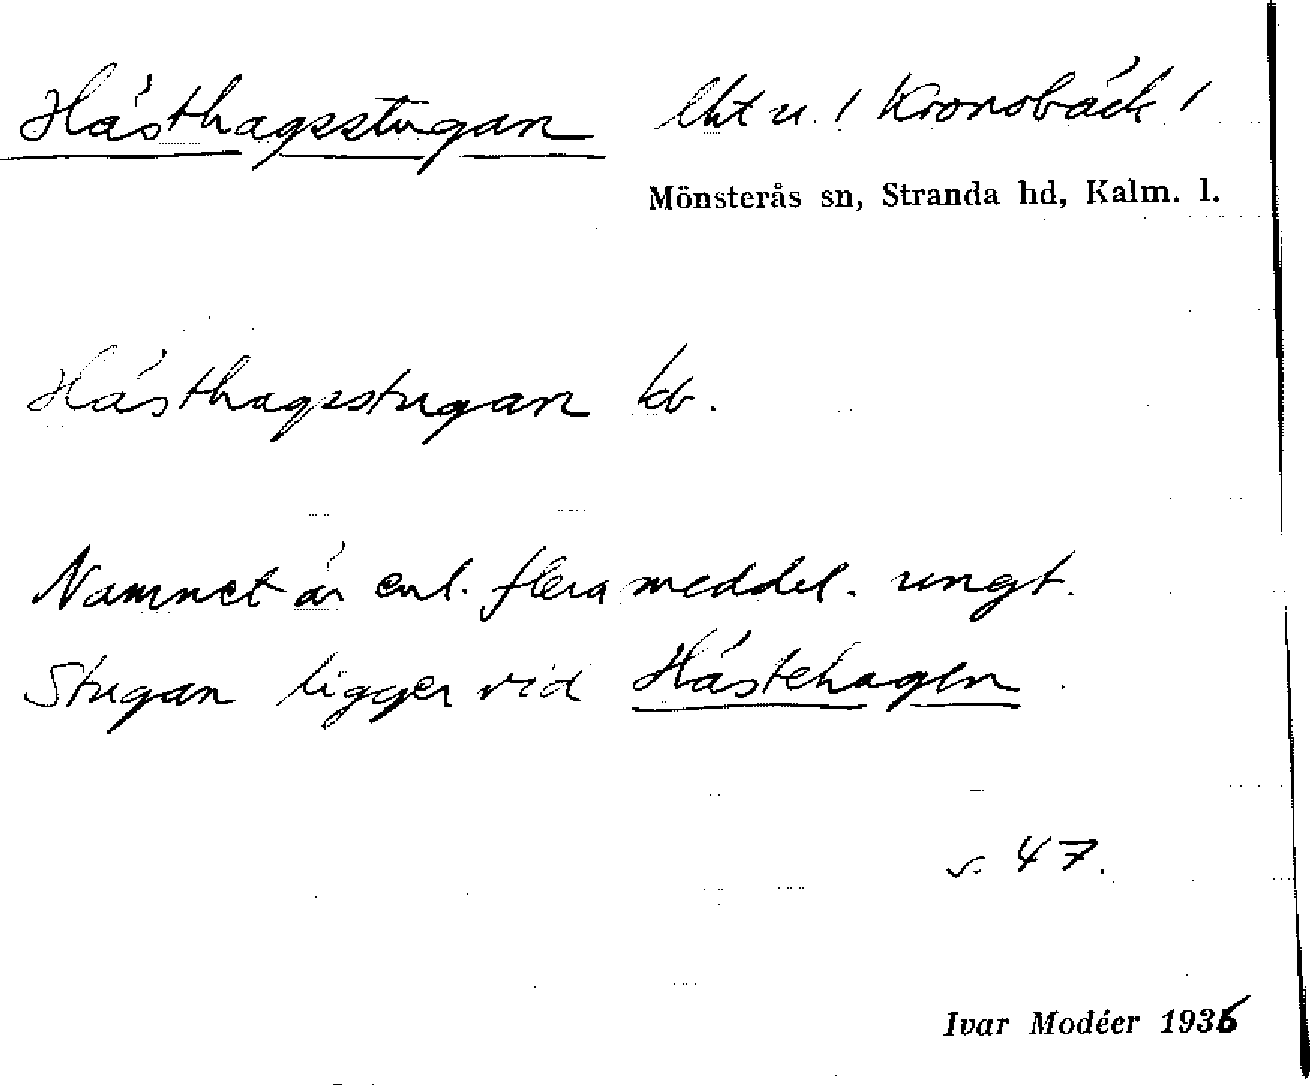 Hästhagsstugan lht u. ! Kronobäck !
Mönsterås sn, Stranda hd, Kalm. l.
Hästhagsstugan kb.
Namnet är enl. flera meddel. ungt.
Stugan ligger vid Hästehagen.
s. 47.
Ivar Modéer 1936